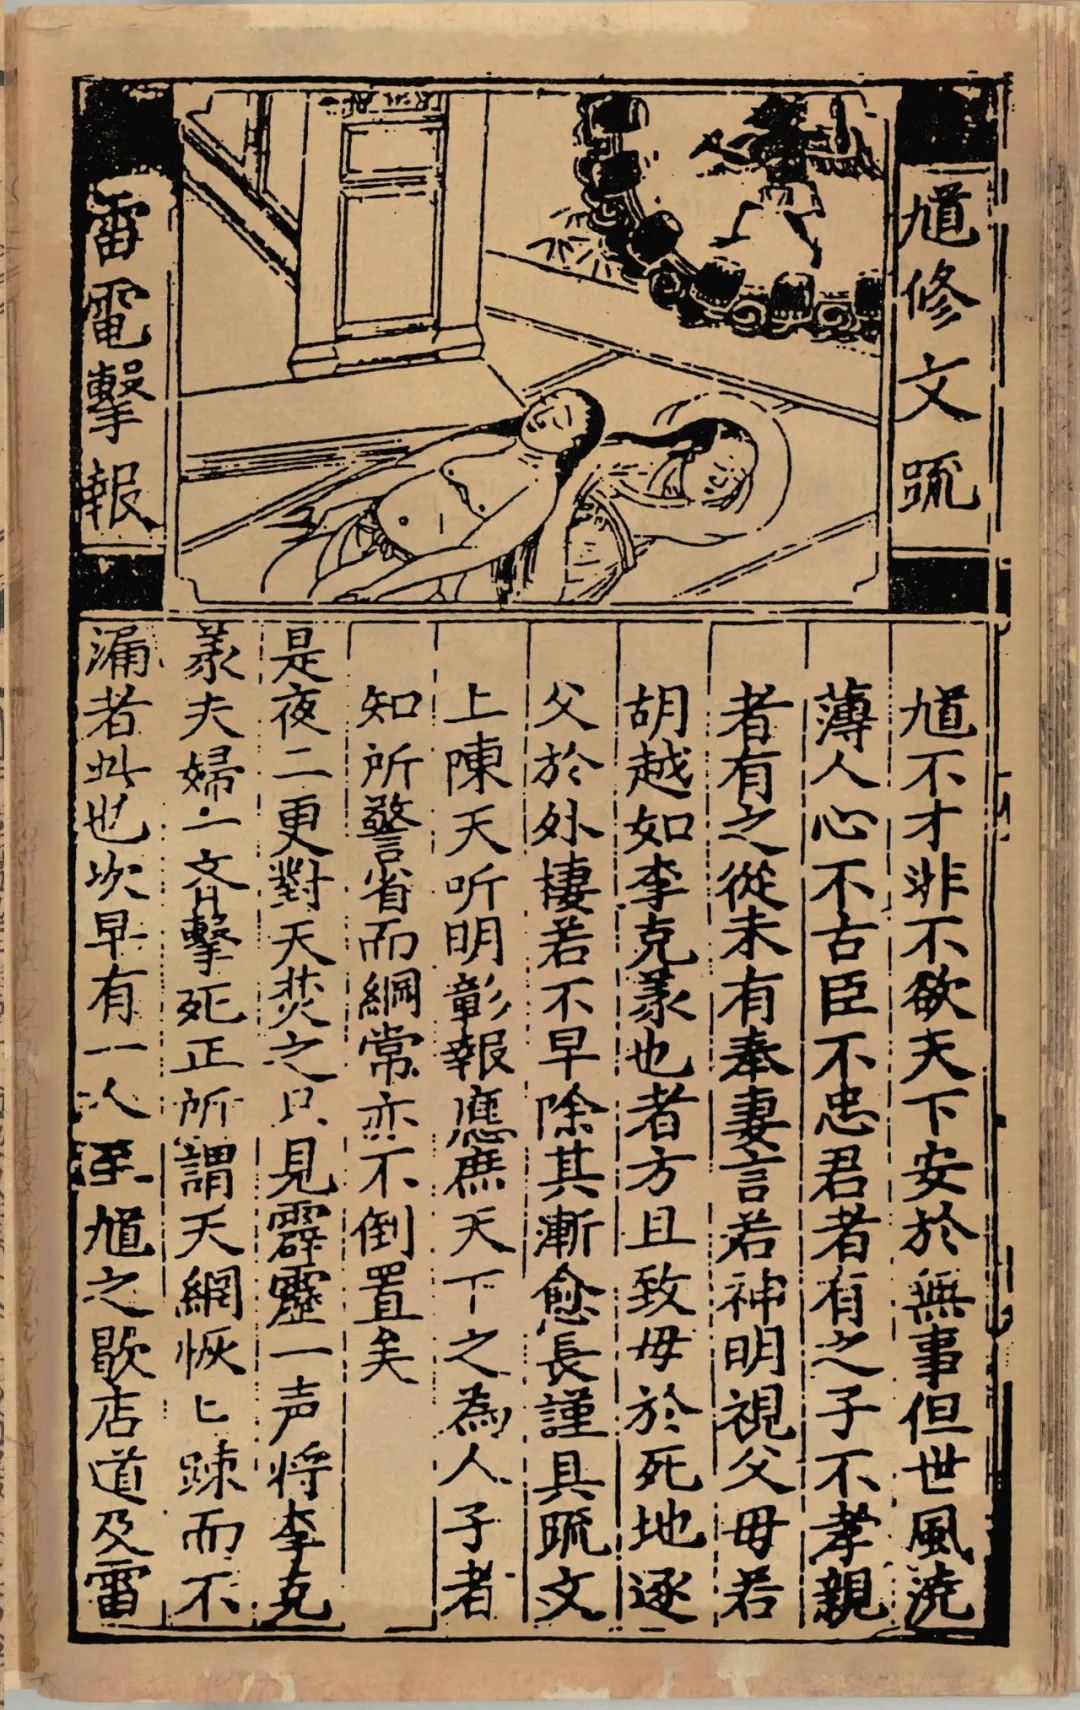 馗修文疏
雷電擊報
馗不才非不欲天下安於無事但世風澆
薄人心不古臣不忠君者有之子不孝親
者有之從未有奉妻言若神明視父母若
胡越如李克羕也者方且致母於死地逐
父於外棲若不早除其漸愈長謹具疏文
上陳天听明彰報應庶天下之為人子者
知所警省而綱常亦不倒置矣
是夜二更對天焚之只見霹靂一声将李克
羕夫婦一齐擊死正所謂天網恢〻踈而不
漏者此也次早有一人至馗之歇店道及雷